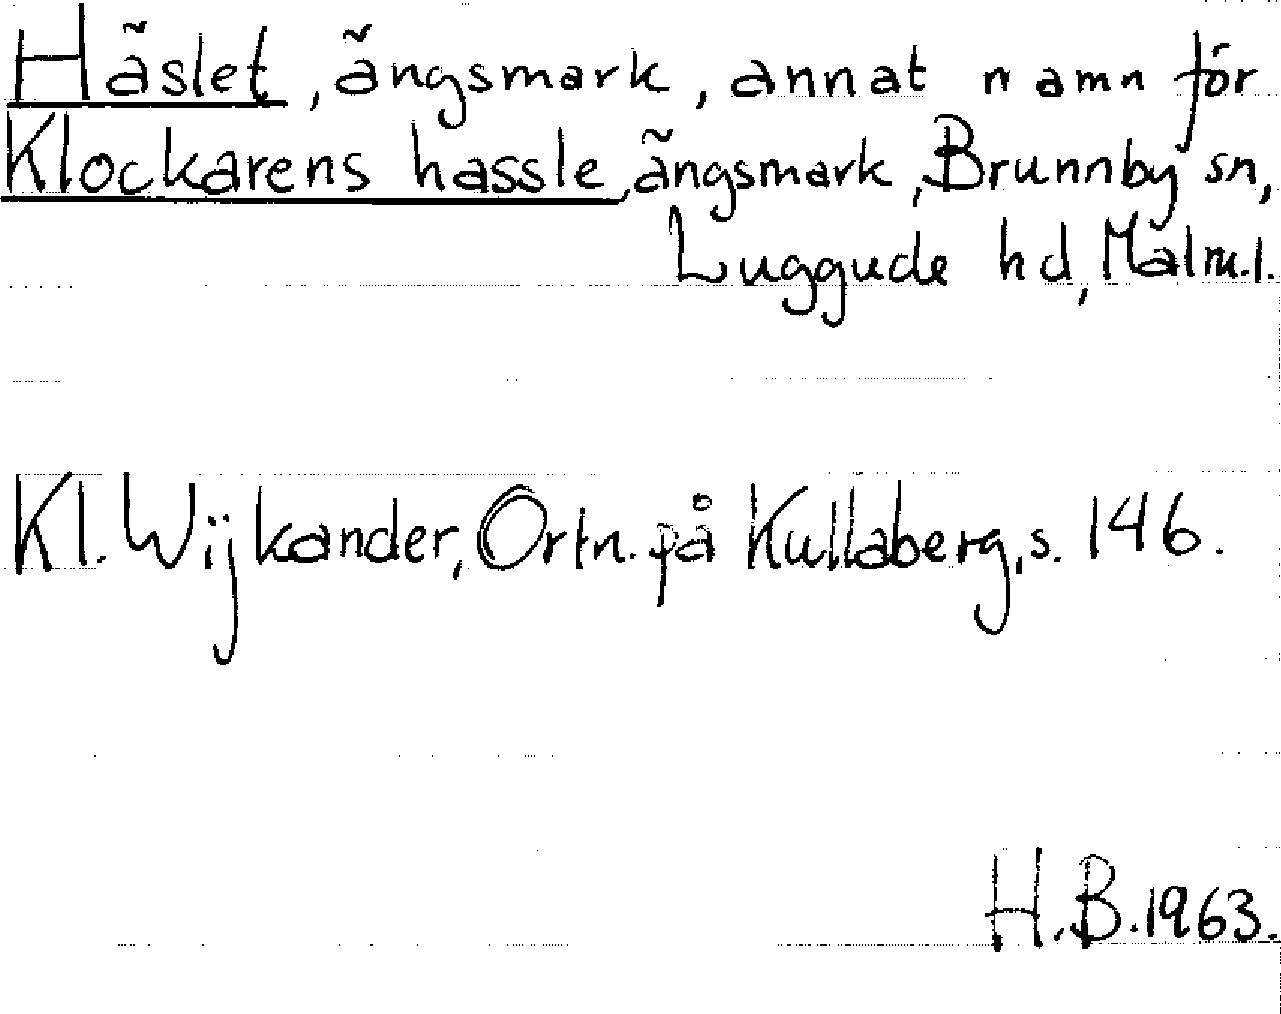 Häslet, ängsmark, annat namn för
Klockarens hassle, ängsmark, Brunnby sn,
Luggude hd, Malm.l.
Kl. Wijkander, Ortn. på Kullaberg, s. 146.
H.B. 1963.